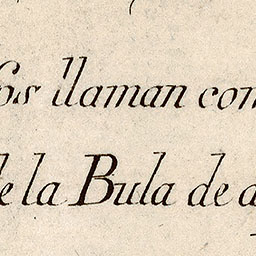 os llaman con
de la Bula de a